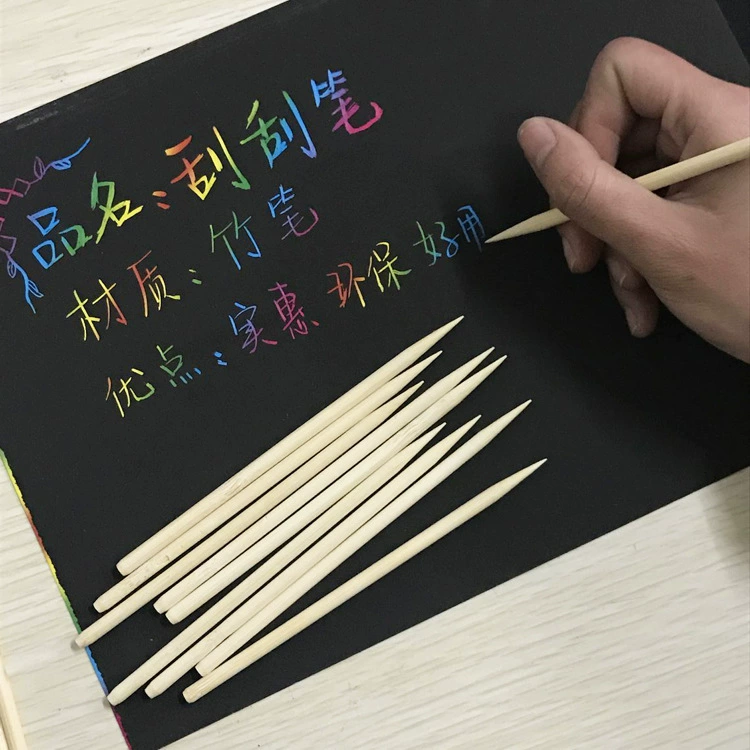 品名：刮刮笔
材质：竹笔
优点：实惠 环保 好用